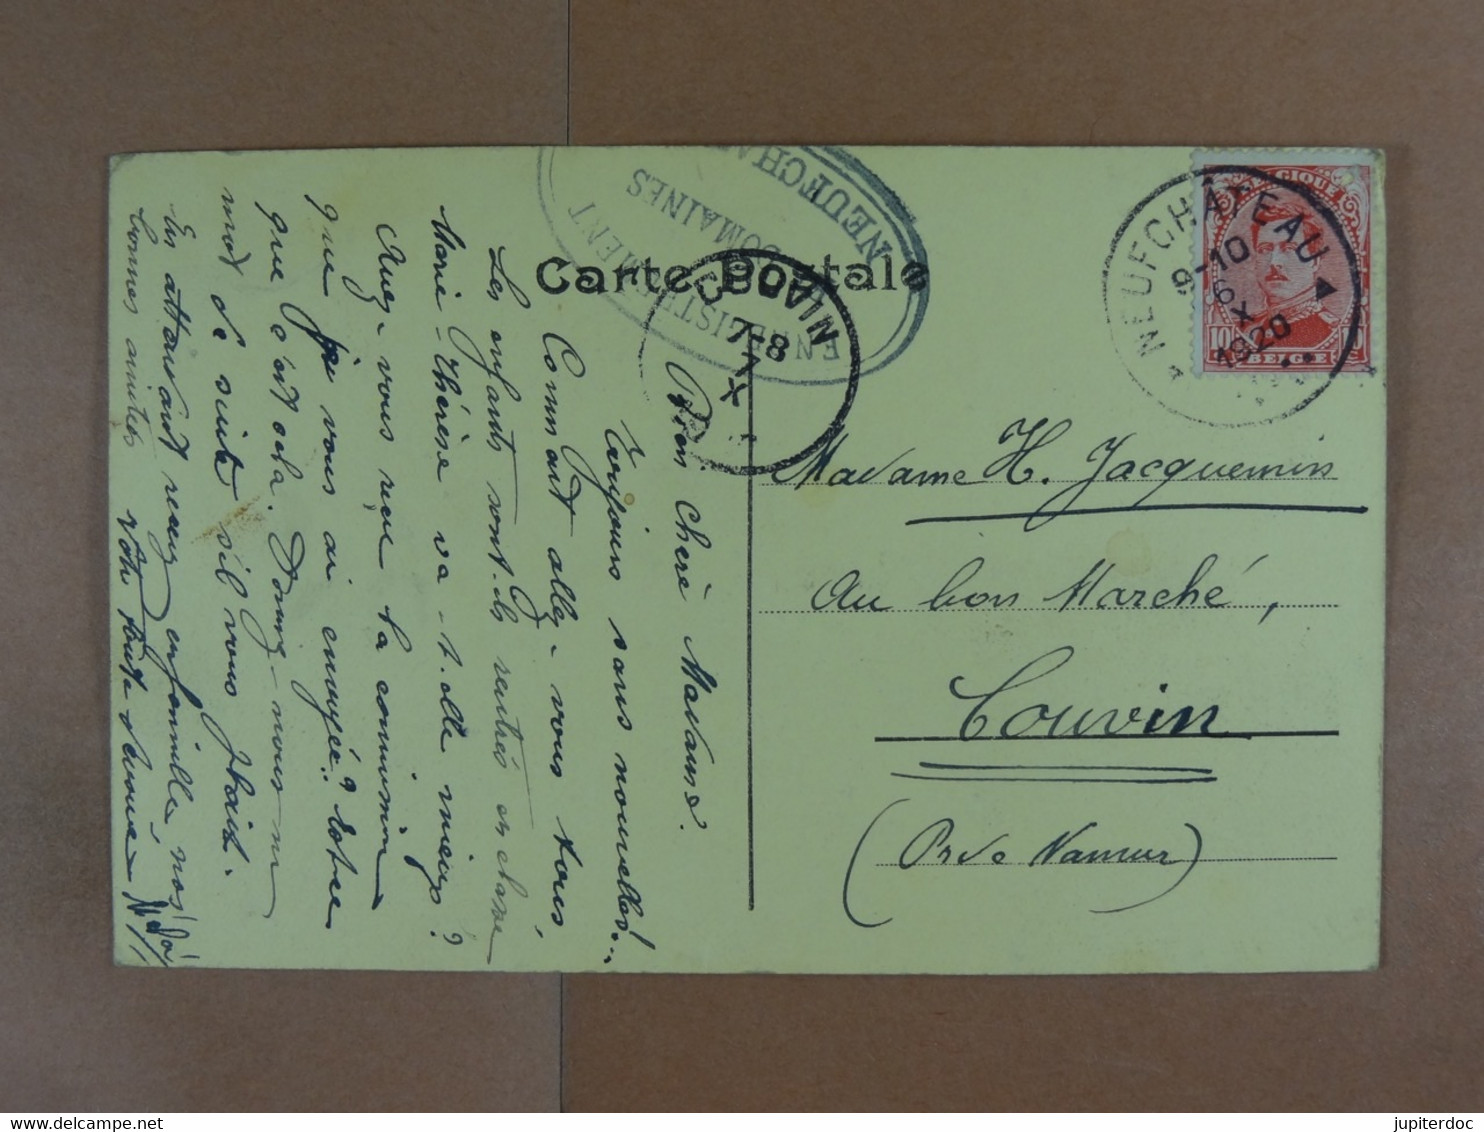 Carte Postale
ENREGISTREMENT
DOMAINES
NEUFCH
COUVIN
7-8
7
X
NEUFCHÂTEAU
9-10
6
X
1920
BELGIQUE
10
BELGIE
Madame H. Jacquemin
Au bon Marché,
Couvin
(Pr de Namur)
Bien chère Madame.
Toujours sans nouvelles!...
Comment allez-vous tous,
Les enfants sont-ils rentrés en classe
Marie-Thérèse va-t-elle mieux?
Avez-vous reçu la commission
que je vous ai envoyée? Est-ce
que c'est cela. Donnez-nous un
mot de suite s'il vous plaît.
En attendant recevez en famille, nos
bonnes amitiés
Votre toute dévouée
jupiterdoc